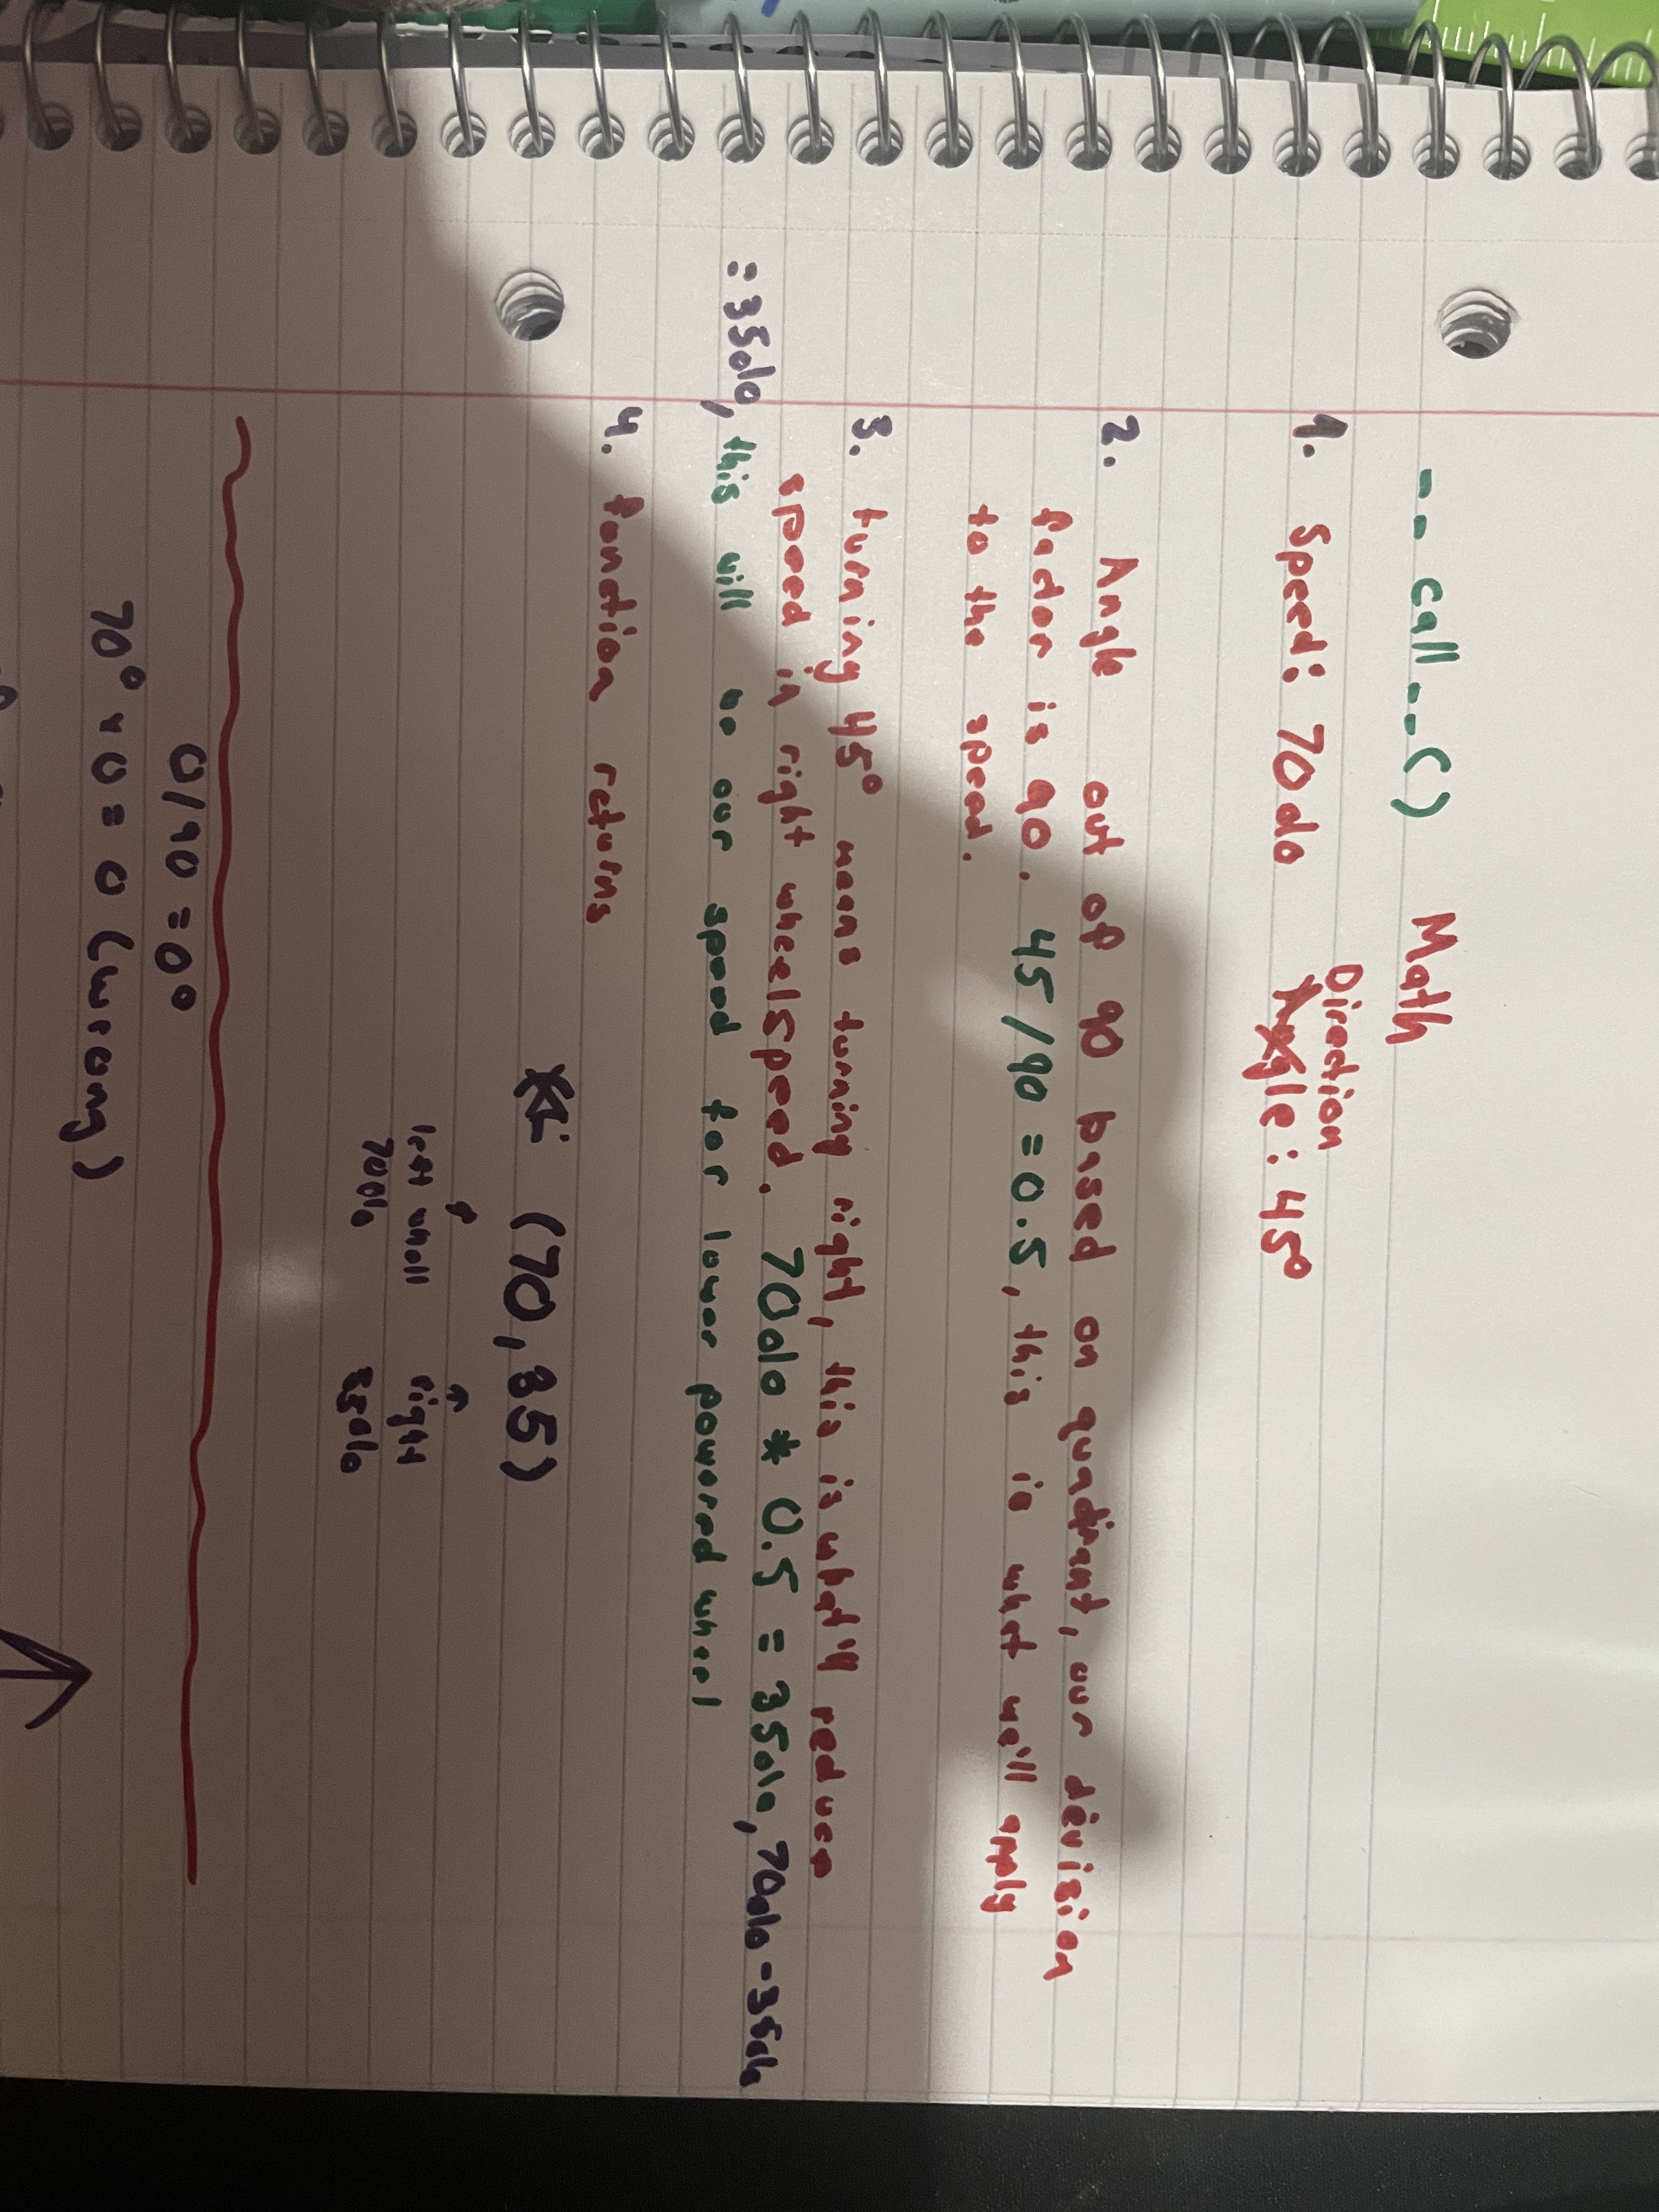 --call--() Math
Direction
1. Speed: 70% Angle: 45°
2. Angle out of 90 based on quadrant, our devision
factor is 90. 45/90 = 0.5, this is what we'll apply
to the speed.
3. turning 45° means turning right, this is what'll reduce
speed in right wheelspeed. 70% * 0.5 = 35%, 70%-35%
=35%, this will be our speed for lower powered wheel
4. function returns
(70,35)
left whell right
70% 35%
0/90 = 0°
70° x 0 = 0 (wrong)